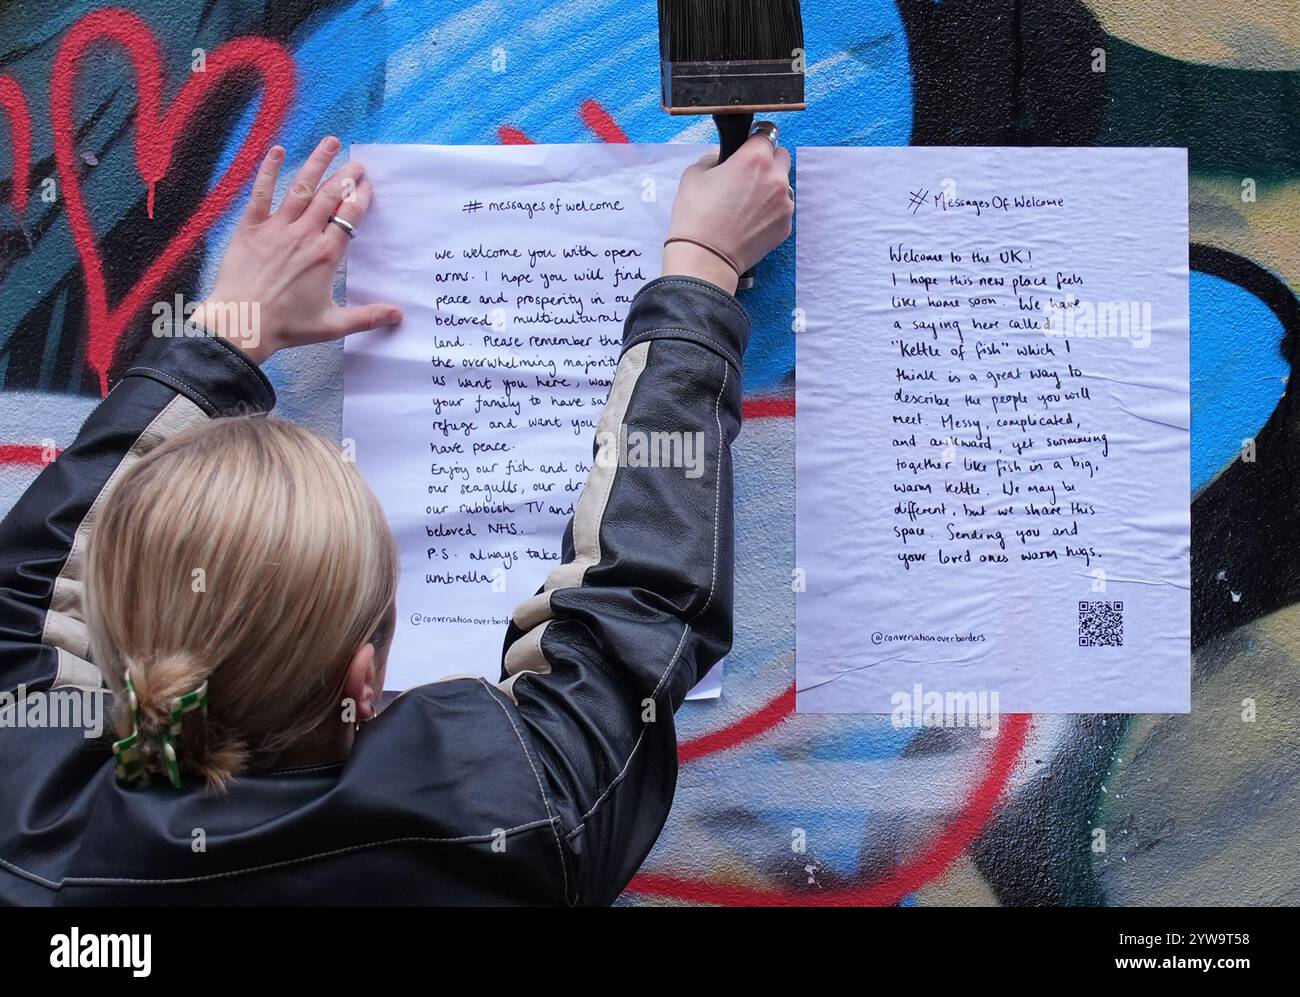 # messages of welcome
we welcome you with open
arms. I hope you will find
peace and prosperity in our
beloved, multicultural
land. Please remember that
the overwhelming majority
us want you here, wan
your family to have sa
refuge and want you
have peace.
Enjoy our fish and ch
our seagulls, our dr
our rubbish TV and
beloved NHS.
P.S. always take
umbrella
@conversationoverborde
# Messages Of Welcome
Welcome to the UK!
I hope this new place feels
like home soon. We have
a saying here called
"Kettle of fish" which I
think is a great way to
describe the people you will
meet. Messy, complicated,
and awkward, yet swimming
together like fish in a big,
warm kettle. We may be
different, but we share this
space. Sending you and
your loved ones warm hugs.
@conversationoverborders
alamy
Image ID: 2YW9T58
www.alamy.com